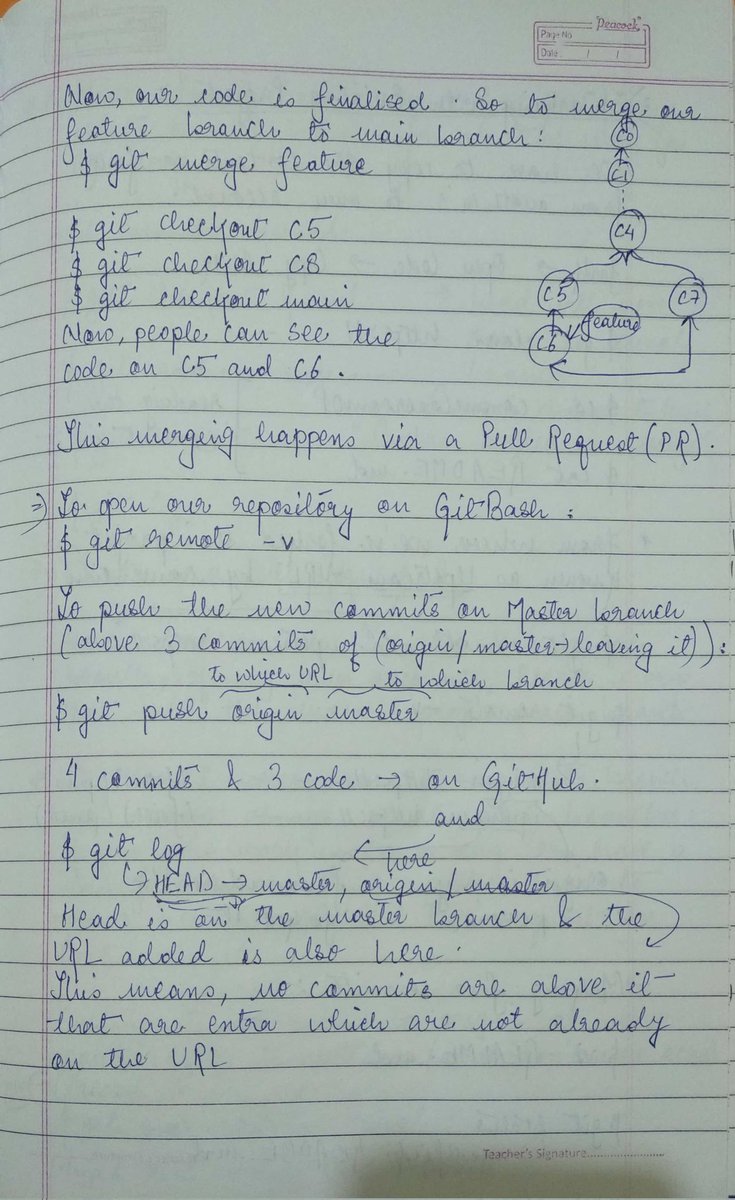 Peacock
Page No
Date / /
Now, our code is finalised. So to merge our
feature branch to main branch:
$ git merge feature
C0
C1
$ git checkout C5
$ git checkout C8
$ git checkout main
C4
C5
C7
C6
feature
Now, people can see the
code on C5 and C6.
This merging happens via a Pull Request (PR).
=) To open our repository on GitBash :
$ git remote -v
To push the new commits on Master branch
(above 3 commits of (origin/master→leaving it)):
to which URL to which branch
$ git push origin master
4 commits & 3 code → on GitHub.
and
$ git log
here
HEAD → master, origin/master
Head is on the master branch & the
URL added is also here.
This means, no commits are above it
that are extra which are not already
on the URL
Teacher's Signature